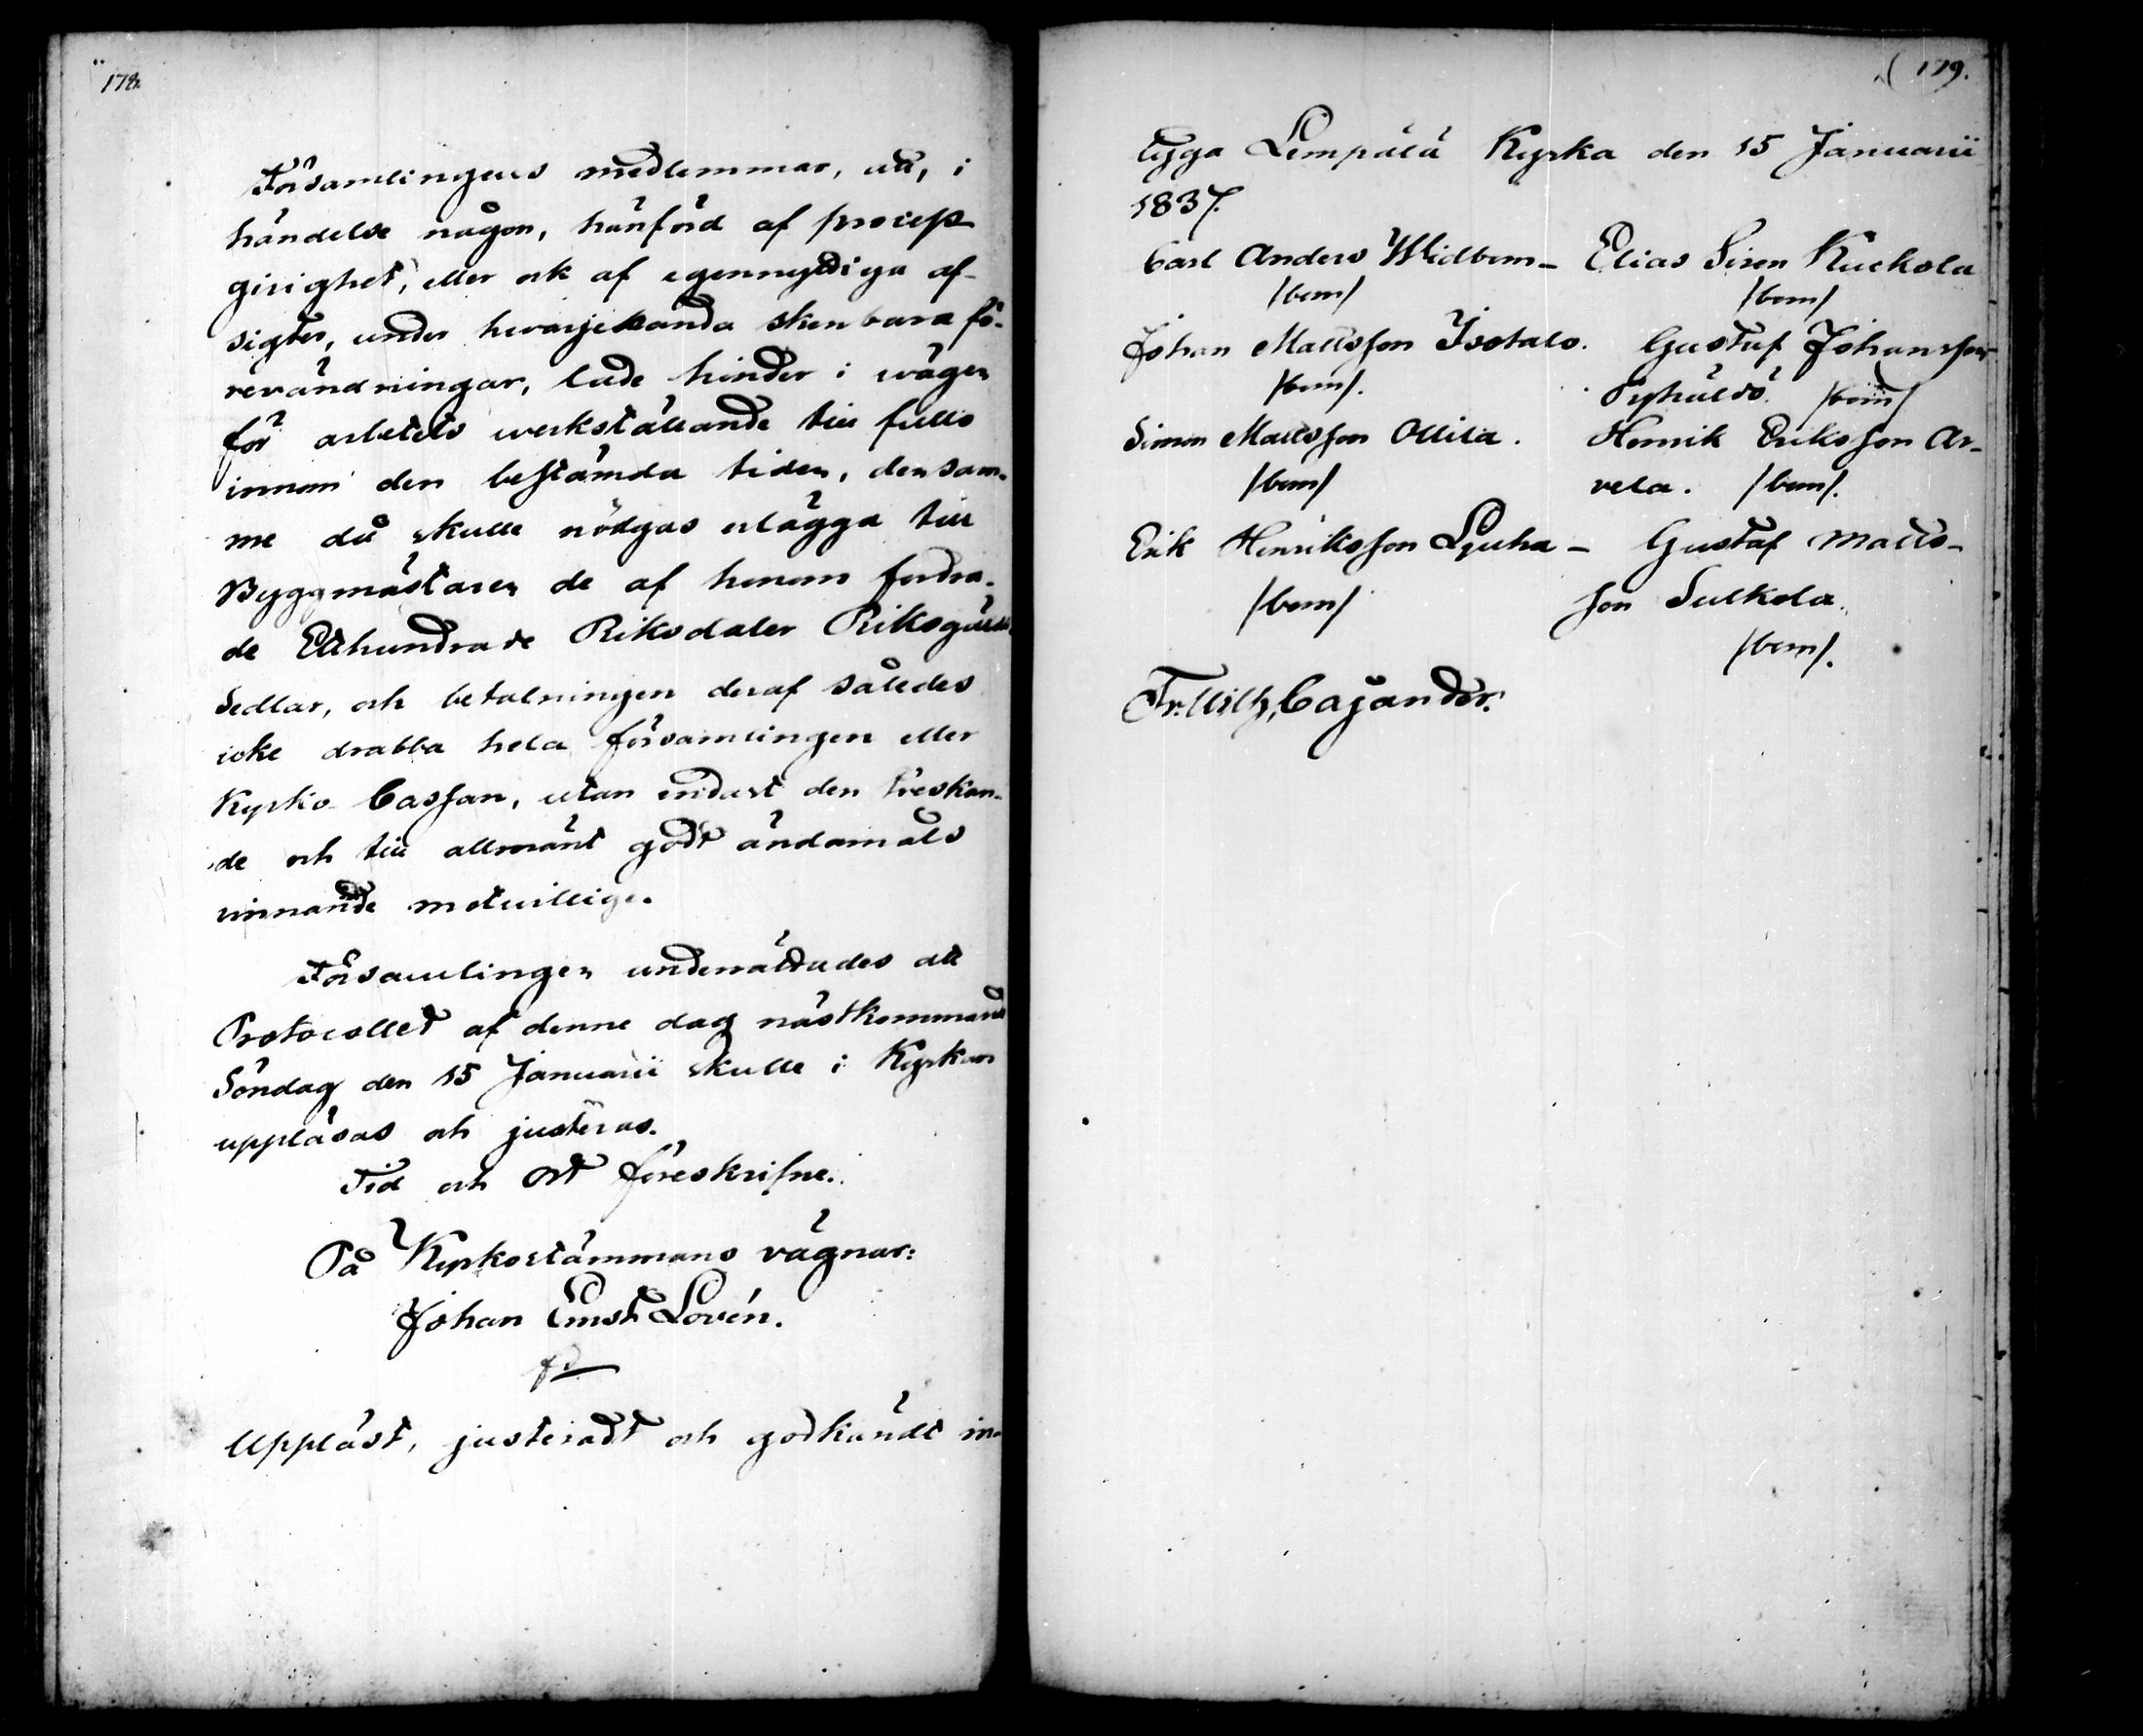 178.
Församlingens medlemmar, att, i
händelse någon, hänförd af process
girighet, eller ock af egennyttiga af-
sigter, under hvarjehanda skenbara fö-
revändningar, lade hinder i wägen
för arbetets werkställande till fullo
innom den bestämda tiden, den sam-
me då skulle nödgas erlägga till
Byggmästaren de af honom fordra-
de Etthundrade Riksdaler Riksgälds
Sedlar, och betalningen deraf således
icke drabba hela församlingen eller
Kyrko Cassan, utan endast den treskan-
de och till allmänt godt ändamåls
vinnande motwillige.
Församlingen underrättades att
Protocollet af denne dag nästkommande
Söndag den 15 Januarii skulle i Kyrkan
uppläsas och justeras.
Tid och Ort föreskrifne.
På Kyrkostämmans vägnar:
Johan Ernst Lovén.
Uppläst, justeradt och godkändt in-
179.
tygga Lempälä Kyrka den 15 Januarii
1837.
Carl Anders Widbom _ Elias Siren Kuckola
/bom/ /bom/
Johan Mattsson Isotalo. Gustaf Johansson
/bom/. Pyhältö. /bom/
Simon Mattsson Ollila. Henrik Eriksson Ar-
/bom/ vela. /bom/.
Erik Henriksson Ljuha _ Gustaf Matts-
/bom/ son Sulkola.
/bom/.
Fr. Wilh. Cajander.